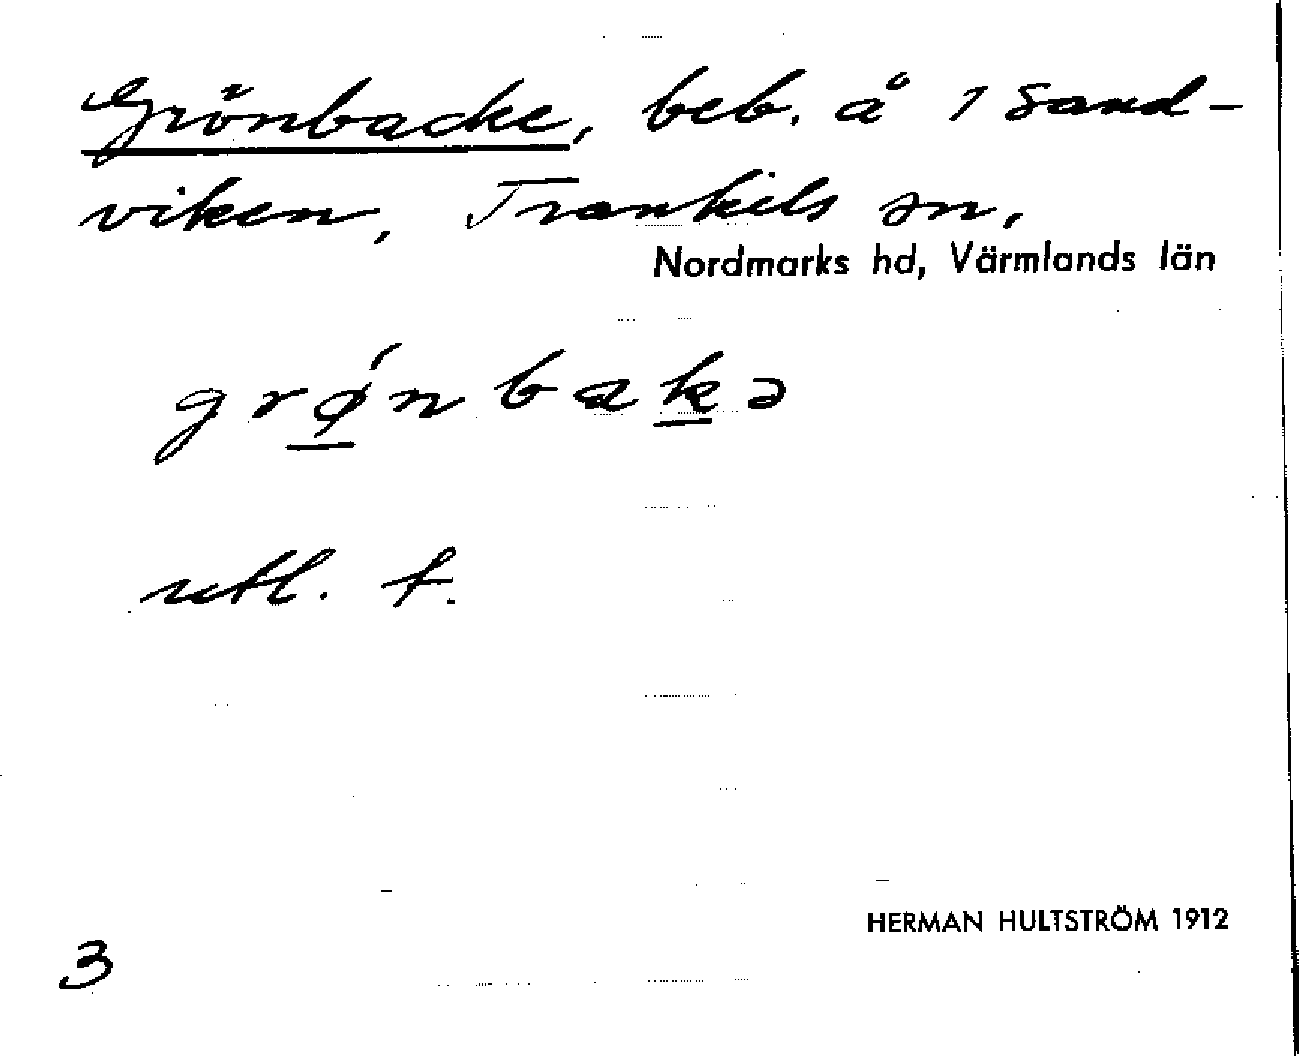 Grönbacke, beb. å 1 Sand-
viken, Trankils sn,
Nordmarks hd, Värmlands län
grǿnbakə
utl. f.
HERMAN HULTSTRÖM 1912
3